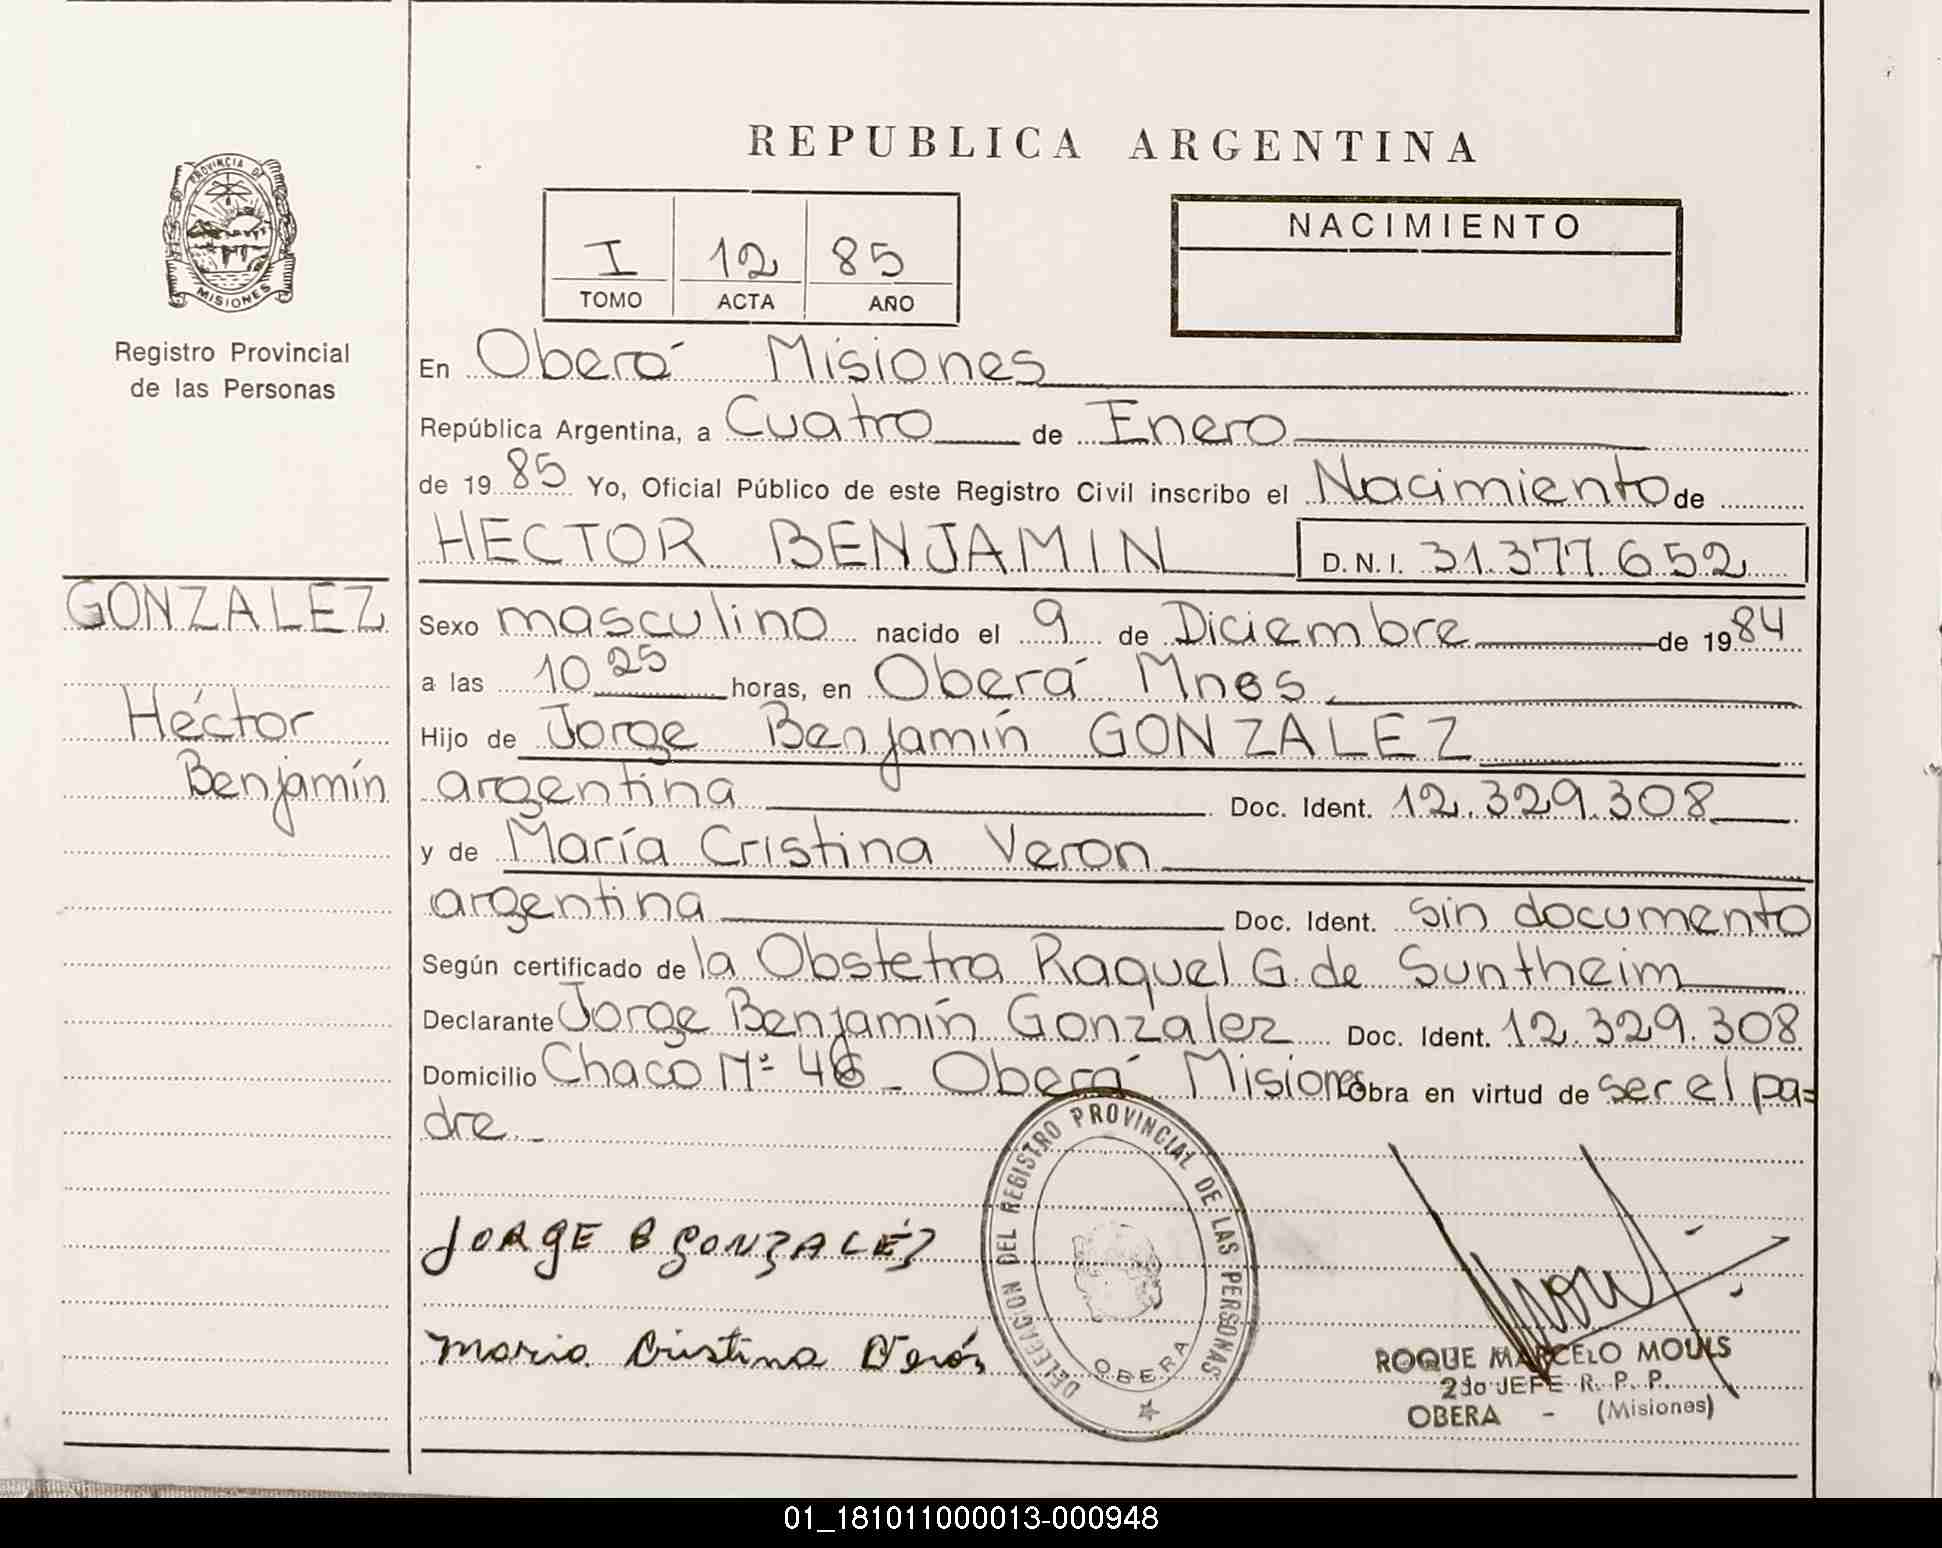 REPUBLICA ARGENTINA
PROVINCIA DE
MISIONES
Registro Provincial
de las Personas
I 12 85
TOMO ACTA AÑO
NACIMIENTO
En Oberá Misiones
República Argentina, a Cuatro de Enero
de 19 85 Yo, Oficial Público de este Registro Civil inscribo el Nacimiento de
HECTOR BENJAMIN D.N.I. 31.377.652
GONZALEZ
Héctor
Benjamín
Sexo masculino nacido el 9 de Diciembre de 19 84
a las 10 25 horas, en Oberá Mnes
Hijo de Jorge Benjamín GONZALEZ
argentina Doc. Ident. 12.329.308
y de María Cristina Veron
argentina Doc. Ident. sin documento
Según certificado de la Obstetra Raquel G. de Suntheim
Declarante Jorge Benjamín Gonzalez Doc. Ident. 12.329.308
Domicilio Chaco Nº 46 - Oberá Misiones Obra en virtud de ser el pa=
dre.-
JORGE B GONZALÉZ
Maria Cristina Verón
DELEGACION DEL REGISTRO PROVINCIAL DE LAS PERSONAS
OBERA
ROQUE MARCELO MOULS
2do JEFE R. P. P.
OBERA - (Misiones)
01_181011000013-000948